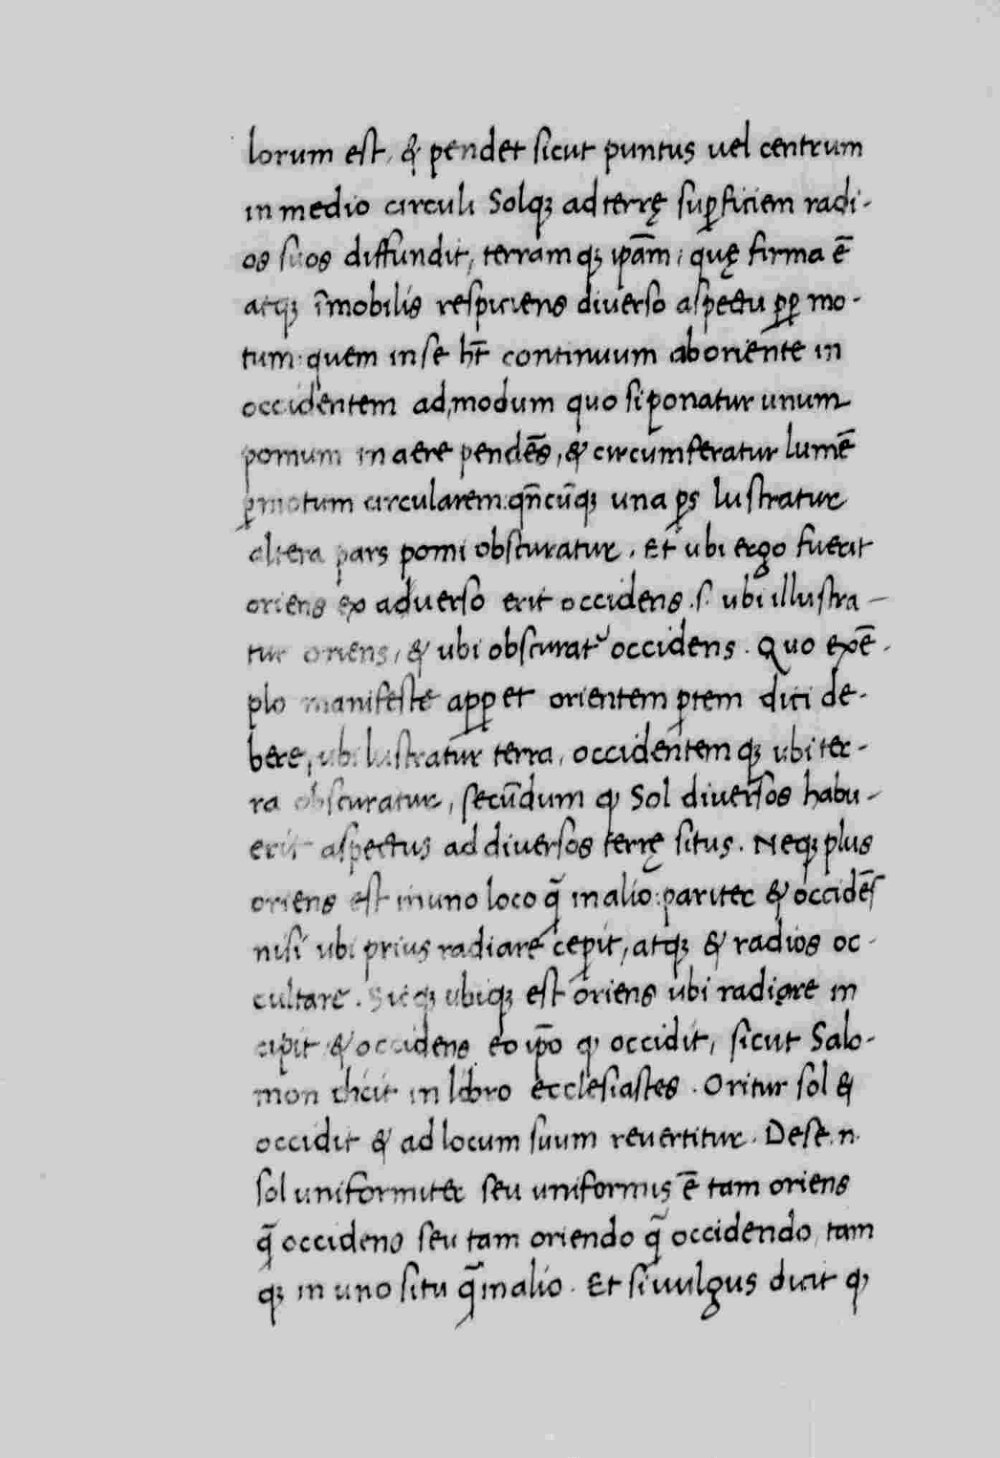 lorum est, & pendet sicut puntus uel centrum
in medio circuli Solqꝫ ad terrę suꝑficiem radi-
os suos diffundit, terramqꝫ ip̄am, quę firma ē
atqꝫ īmobilis respiciens diuerso aspectu ꝓꝑ mo-
tum quem in se ht̄ continuum ab oriente in
occidentem ad modum quo si ponatur unum
pomum in aere pendēs, & circumferatur lumē
ꝑ motum circularem qn̄cūqꝫ una ꝑs lustratur
altera pars pomi obscuratur. Et ubi ergo fuerit
oriens ex aduerso erit occidens .s. ubi illustra-
tur oriens, & ubi obscuratᷣ occidens. Quo exē-
plo manifeste apꝑet orientem ꝑtem dici de-
bere, ubi lustratur terra, occidentemqꝫ ubi ter-
ra obscuratur, secūdum ꝙ Sol diuersos habu-
erit aspectus ad diuersos terrę situs. Neqꝫ plus
oriens est in uno loco q̄ in alio: pariter & occidēs
nisi ubi prius radiare cepit, atqꝫ & radios oc-
cultare. Sicqꝫ ubiqꝫ est oriens ubi radiare in
cipit & occidens eo ip̄o ꝙ occidit, sicut Salo-
mon dicit in libro ecclesiastes. Oritur sol &
occidit & ad locum suum reuertitur. De se .n.
sol uniformiter seu uniformis ē tam oriens
q̄ occidens seu tam oriendo q̄ occidendo, tam
qꝫ in uno situ q̄ in alio. Et si uulgus dicit ꝙ